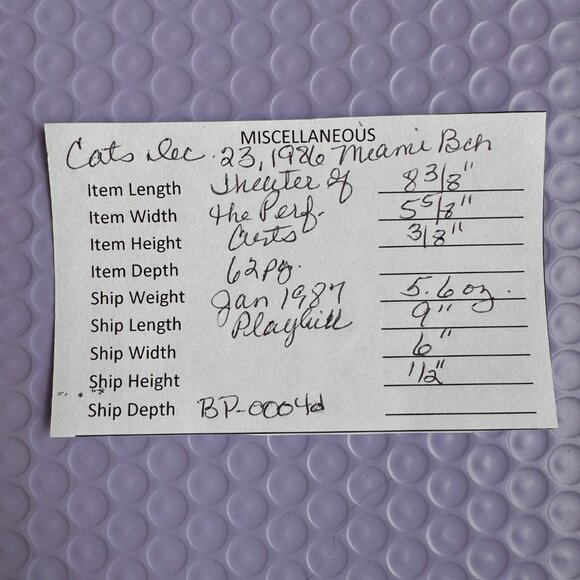 MISCELLANEOUS
Cats Dec. 23, 1986 Miami Bch
Item Length Theater of 8 3/8"
Item Width the Perf. 5 5/8"
Item Height Arts 3/8"
Item Depth 62 pg.
Ship Weight Jan 1987 5.6 oz.
Ship Length Playbill 9"
Ship Width 6"
Ship Height 1/2"
Ship Depth BP-0004d